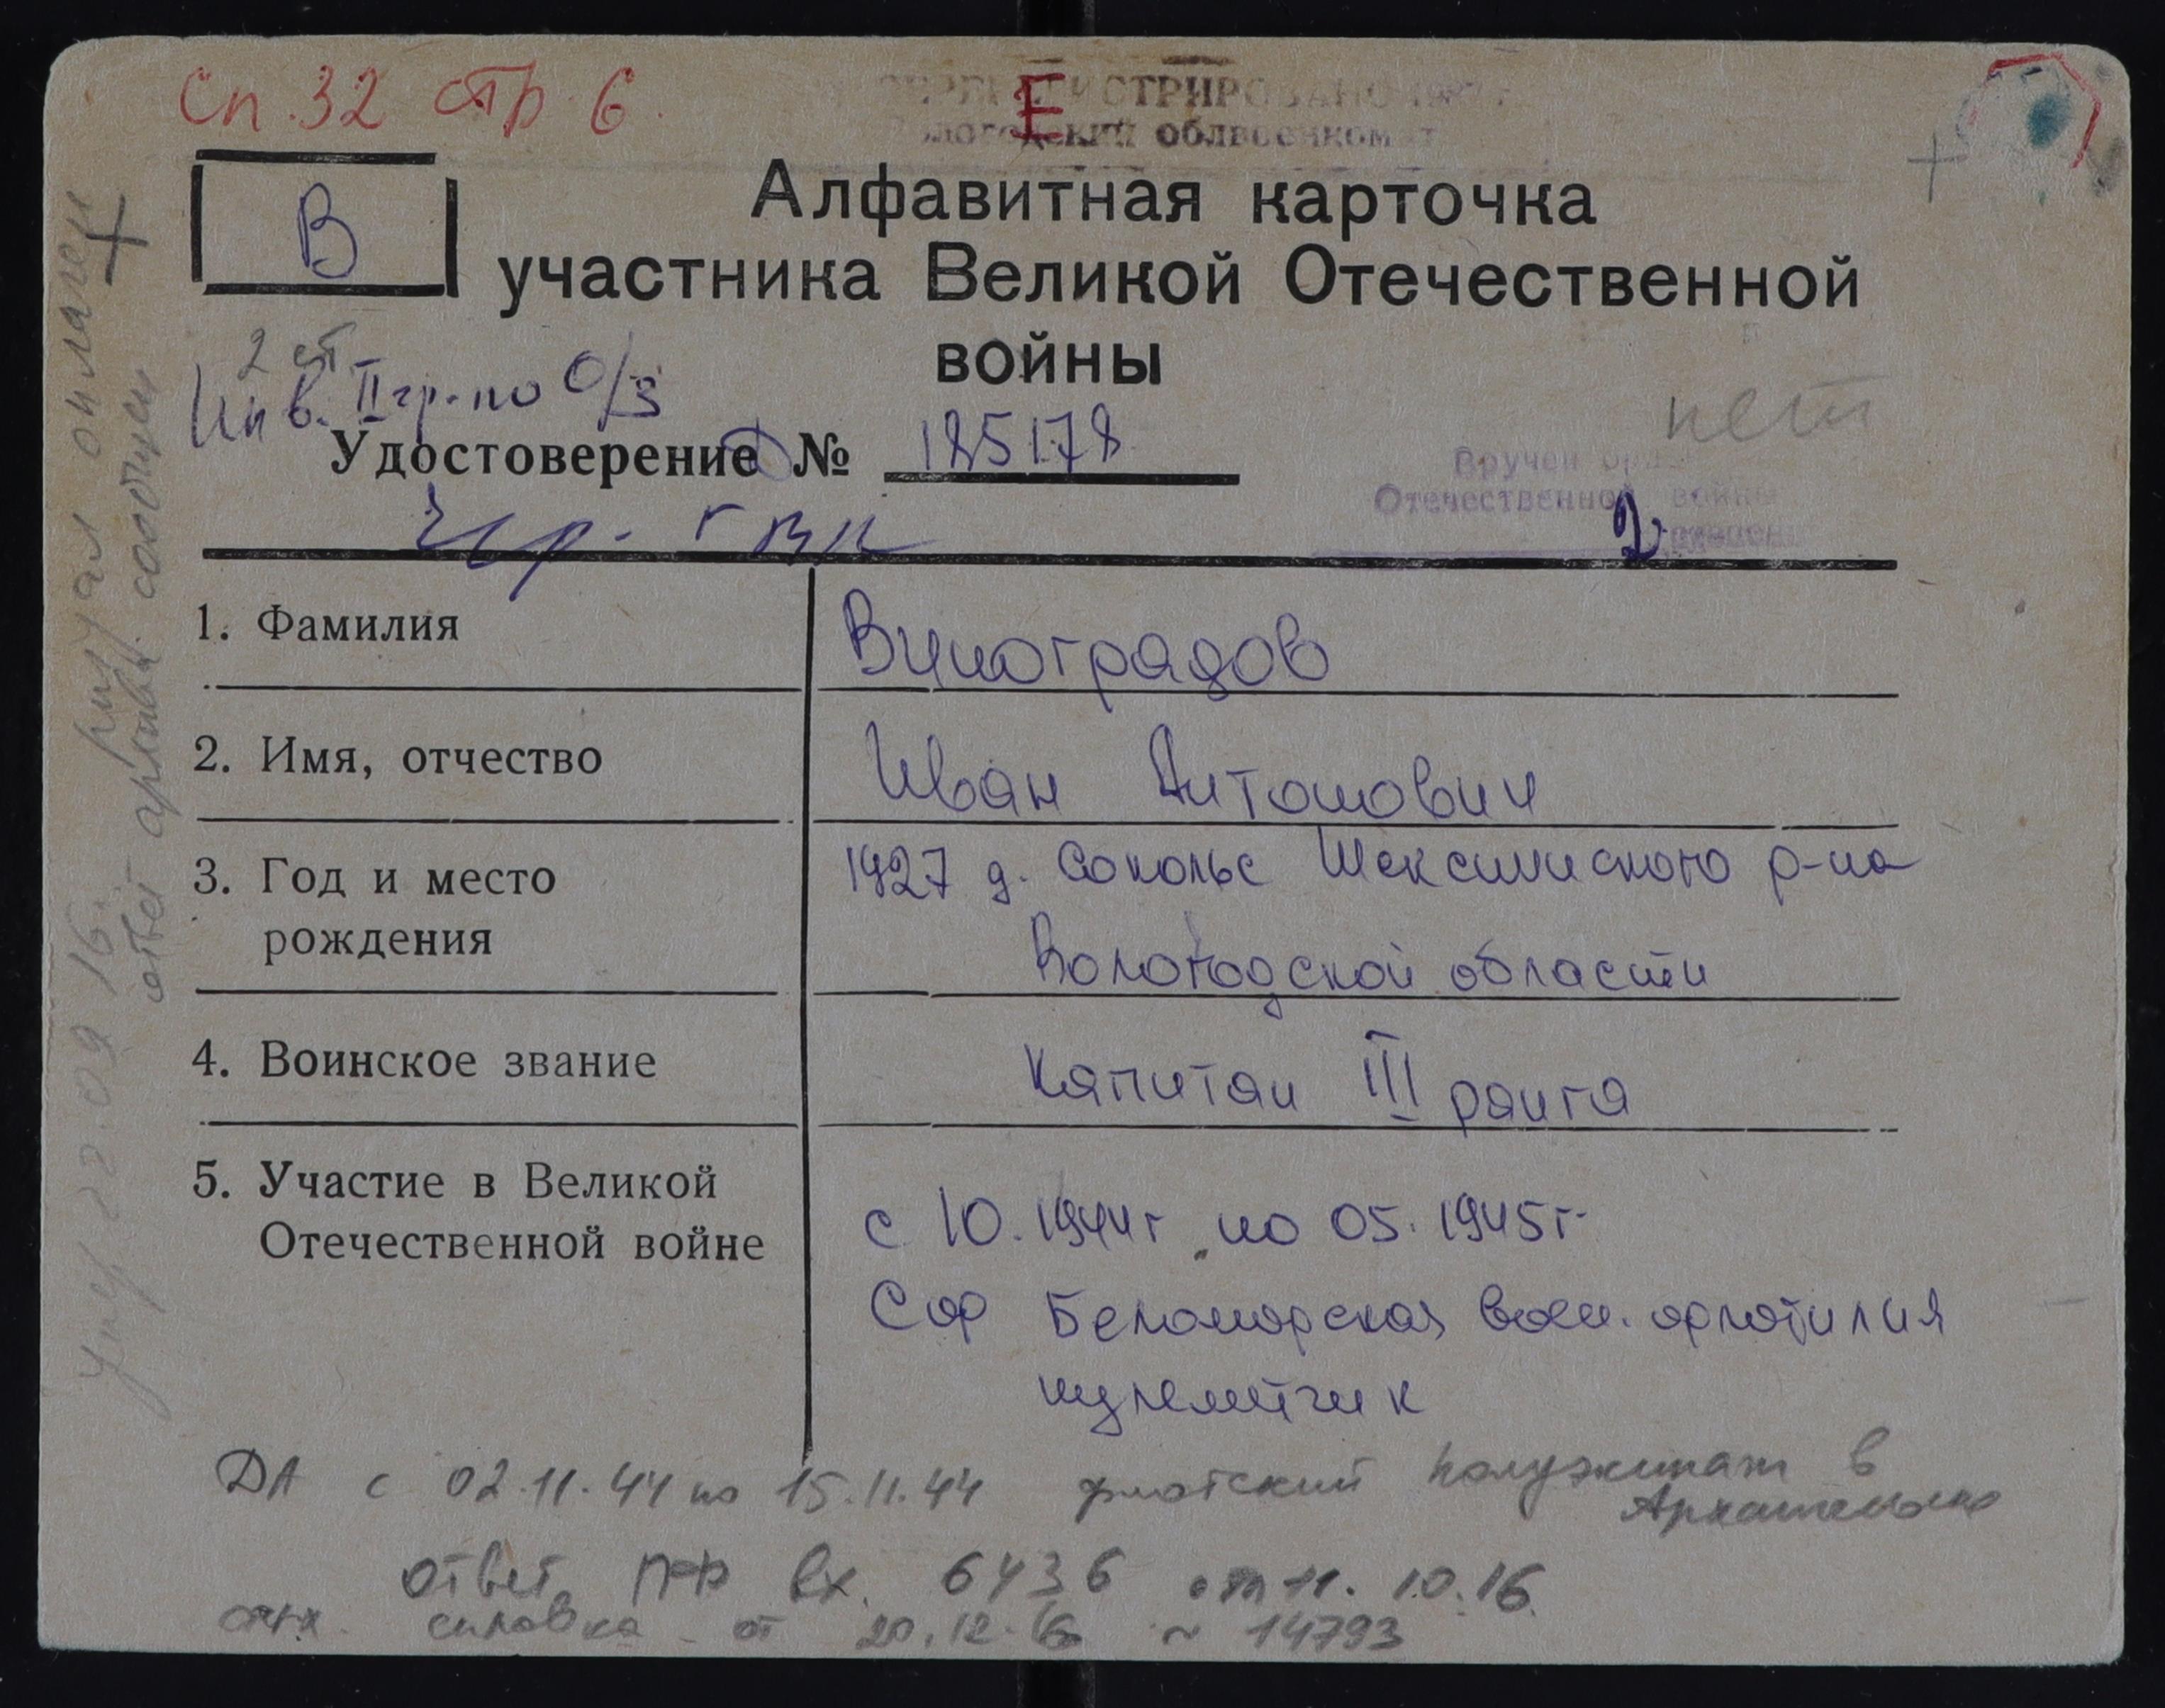 Сп. 32 стр. 6.
Е
ПЕРЕРЕГИСТРИРОВАНО
Вологодский облвоенкомат
В
Алфавитная карточка
участника Великой Отечественной
войны
2 ст
Инв. II гр. по О/З
нет
Удостоверение № 185178
Вручен орден
Отечественной войны
2 степени
Чер. ГВК
1. Фамилия
Виноградов
2. Имя, отчество
Иван Антонович
3. Год и место
рождения
1927 д. Соколье Шекснинского р-на
Вологодской области
4. Воинское звание
Капитан III ранга
5. Участие в Великой
Отечественной войне
с 10.1944г по 05.1945г.
Сф Беломорская воен. флотилия
пулеметчик
ДА с 02.11.44 по 15.11.44 флотский полуэкипаж в
Архангельске
ответ ПФ вх. 6436 от 11.10.16.
арх. справка от 20.12.16 № 14793
Умер 22.09.16. ритуал оплачен
ответ архива сообщен